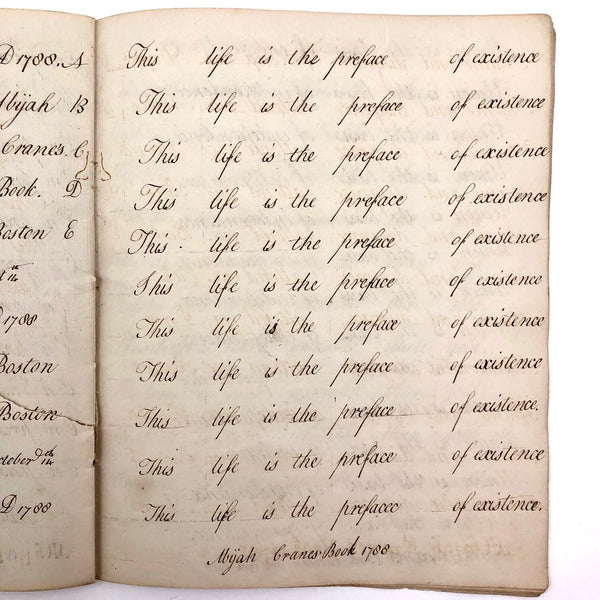 D 1788. A
Abijah B
Cranes. C
Book. D
Boston E
th
D 1788
Boston
Boston
October th
D 1788
This life is the preface of existence
This life is the preface of existence
This life is the preface of existence
This life is the preface of existence
This life is the preface of existence
This life is the preface of existence
This life is the preface of existence
This life is the preface of existence
This life is the preface of existence.
This life is the preface of existence
This life is the preface of existence.
Abijah Cranes Book 1788